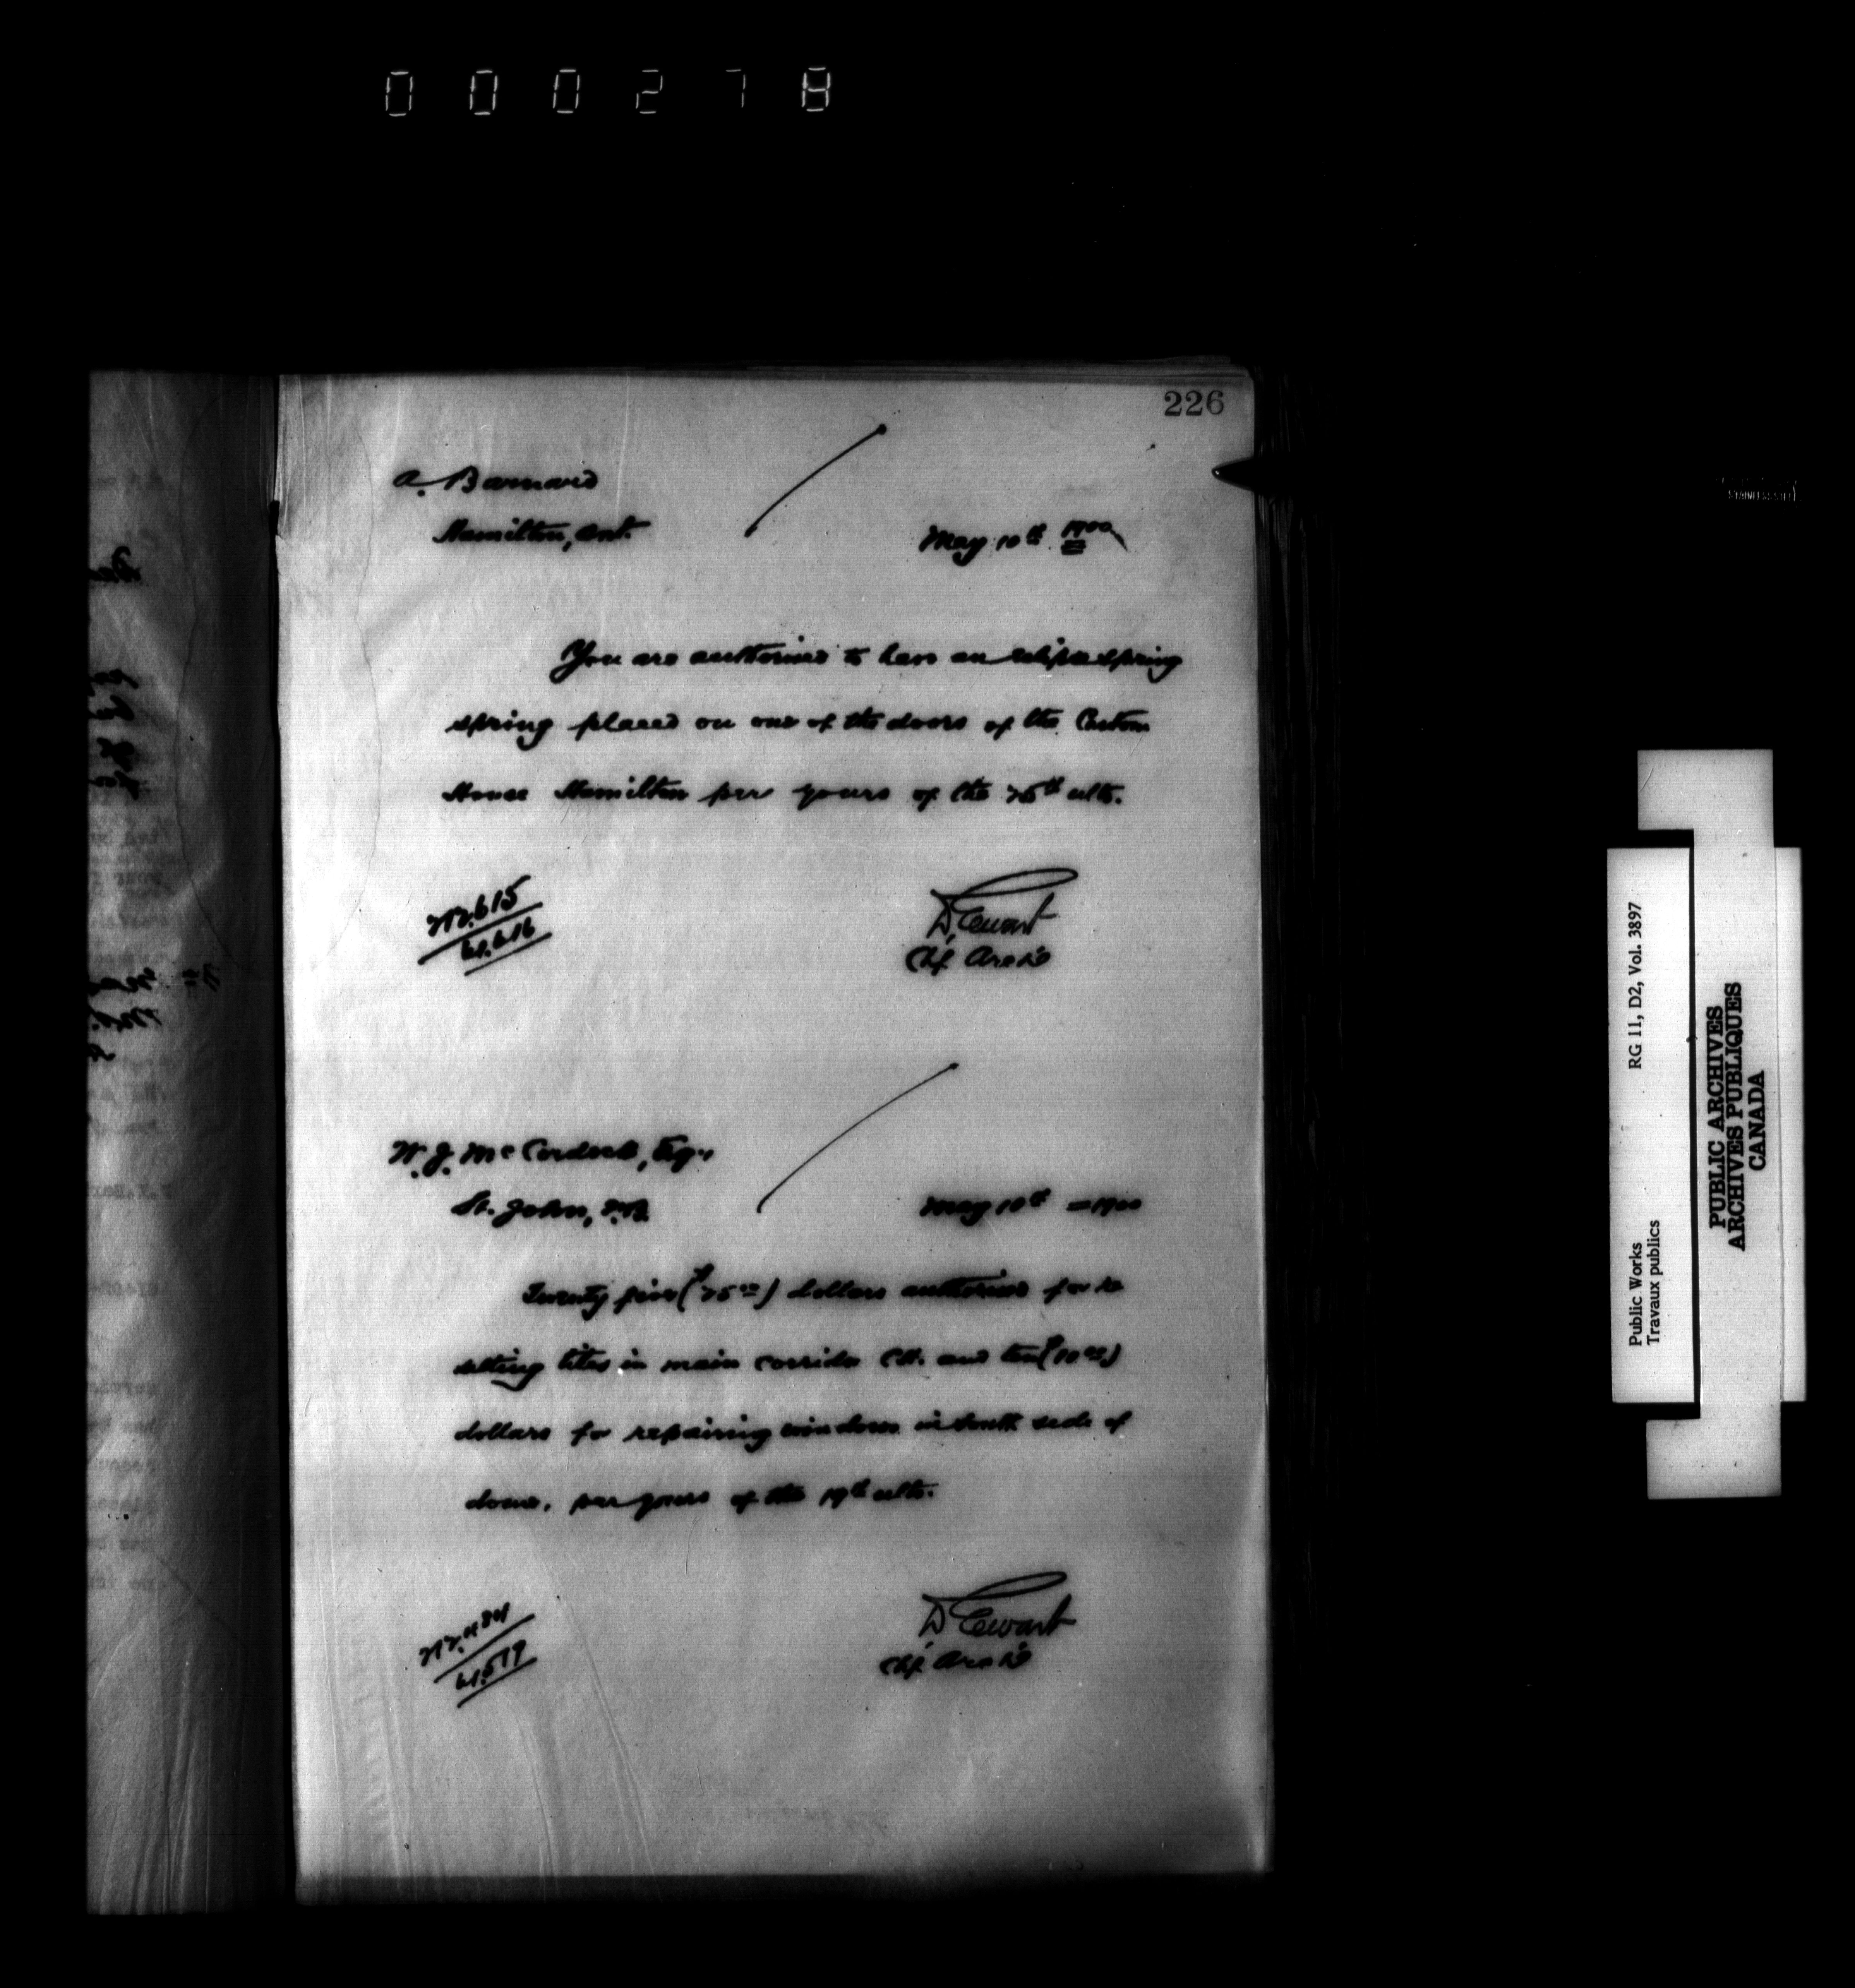 000278
226
A. Barnard
Hamilton, Ont.
May 10th 1900
You are authorised to have an eclipse spring
spring placed on one of the doors of the Custom
House Hamilton per yours of the 26th ulto.
615
61.616
D. Ewart
Chf. Arch't
W. J. McCordock, Esq.,
St. John, N.B.
May 10th – 1900
Twenty five ($25.00) dollars authorised for re
setting tiles in main corridor C.H. and ten ($10.00)
dollars for repairing windows in South side of
dome, per yours of the 19th ulto.
61.519
D. Ewart
Chf. Arch't
Public Works
Travaux publics
RG 11, D2, Vol. 3897
PUBLIC ARCHIVES
ARCHIVES PUBLIQUES
CANADA